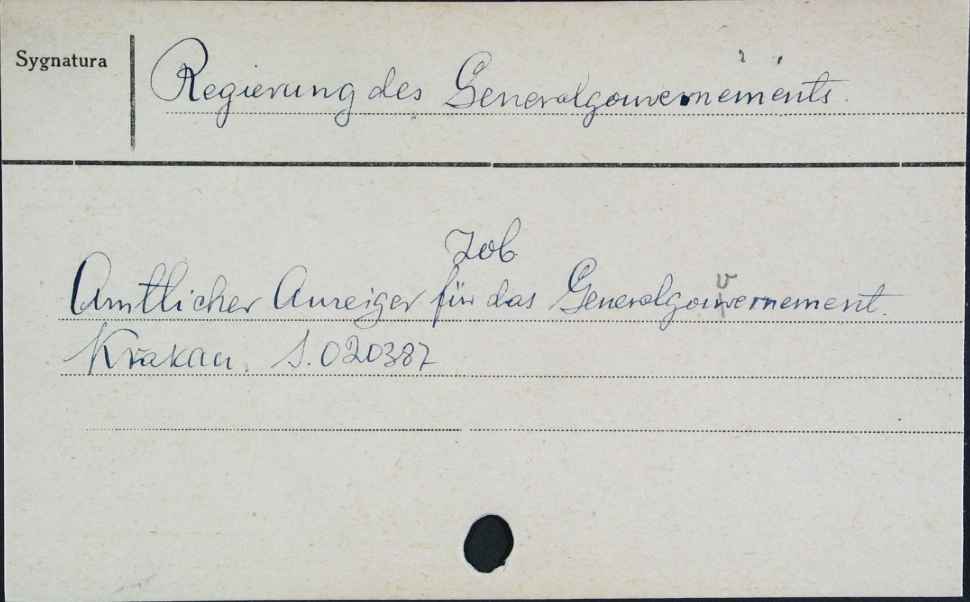 Sygnatura
Regierung des Generalgouvernements.
Zob
Amtlicher Anzeiger für das Generalgouvernement.
Krakau. S.020387